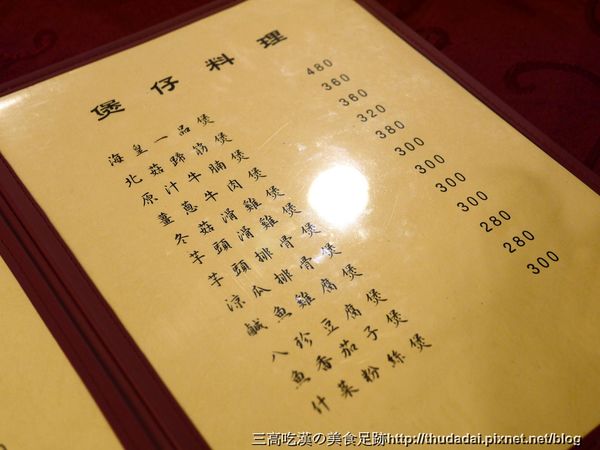 煲仔料理
海皇一品煲 480
北菇蹄筋煲 360
原汁牛腩煲 360
薑蔥牛肉煲 320
冬菇滑雞煲 380
芋頭滑雞煲 300
芋頭排骨煲 300
涼瓜排骨煲 300
鹹魚雞腐煲 300
八珍豆腐煲 280
魚香茄子煲 280
什菜粉絲煲 300
三高吃漢の美食足跡http://thudadai.pixnet.net/blog